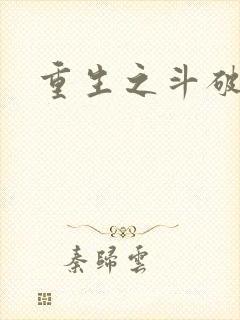 重生之斗破
秦歸雲